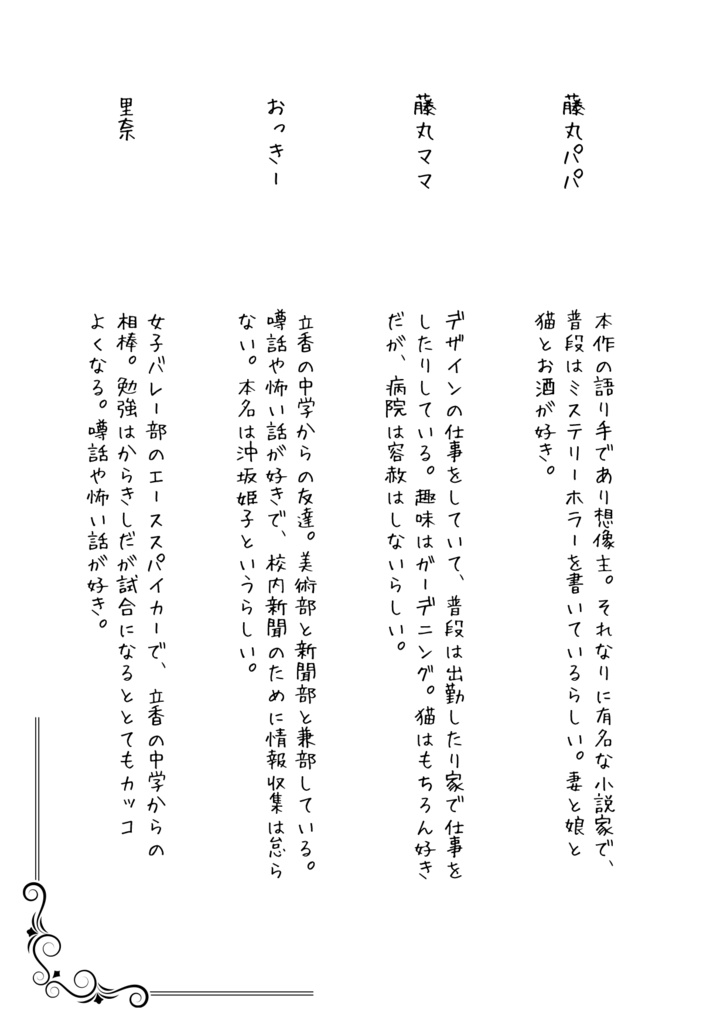 藤丸パパ
本作の語り手であり想像主。それなりに有名な小説家で、
普段はミステリーホラーを書いているらしい。妻と娘と
猫とお酒が好き。
藤丸ママ
デザインの仕事をしていて、普段は出勤したり家で仕事を
したりしている。趣味はガーデニング。猫はもちろん好き
だが、病院は容赦はしないらしい。
おっきー
立香の中学からの友達。美術部と新聞部と兼部している。
噂話や怖い話が好きで、校内新聞のために情報収集は怠ら
ない。本名は沖坂姫子というらしい。
里奈
女子バレー部のエーススパイカーで、立香の中学からの
相棒。勉強はからきしだが試合になるととてもカッコ
よくなる。噂話や怖い話が好き。